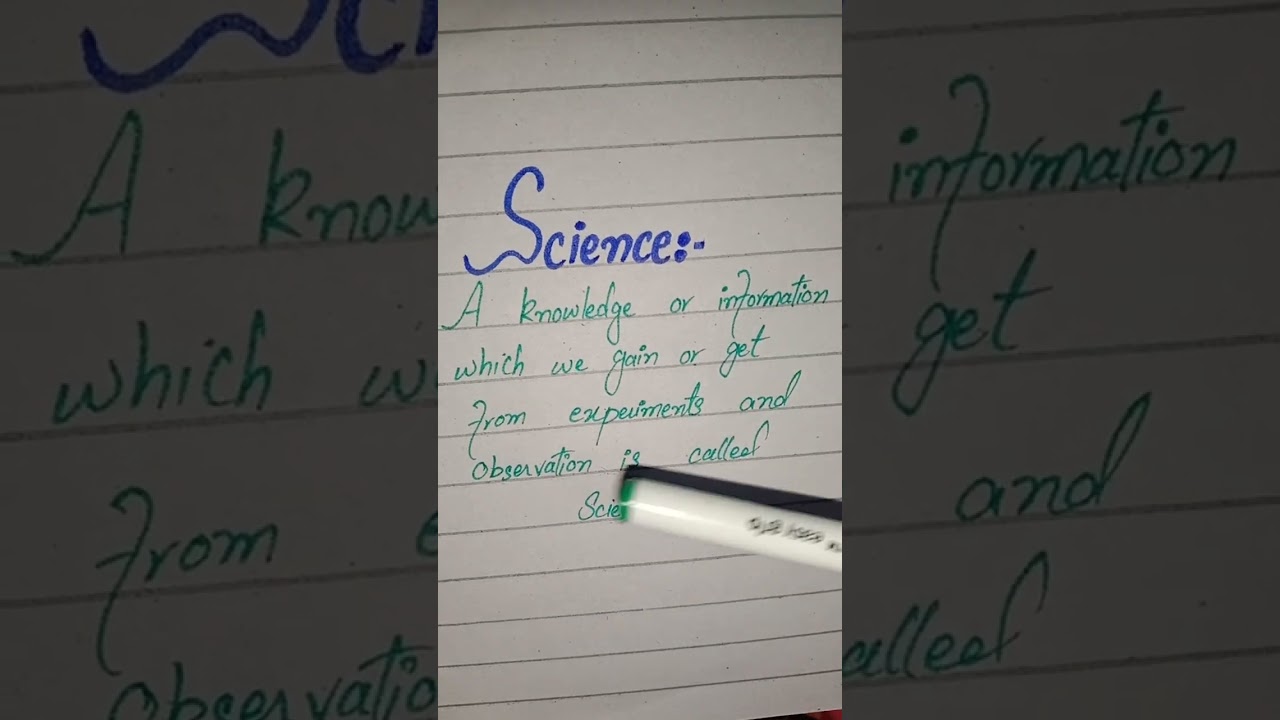 Science:-
A knowledge or information
which we gain or get
from experiments and
observation is called